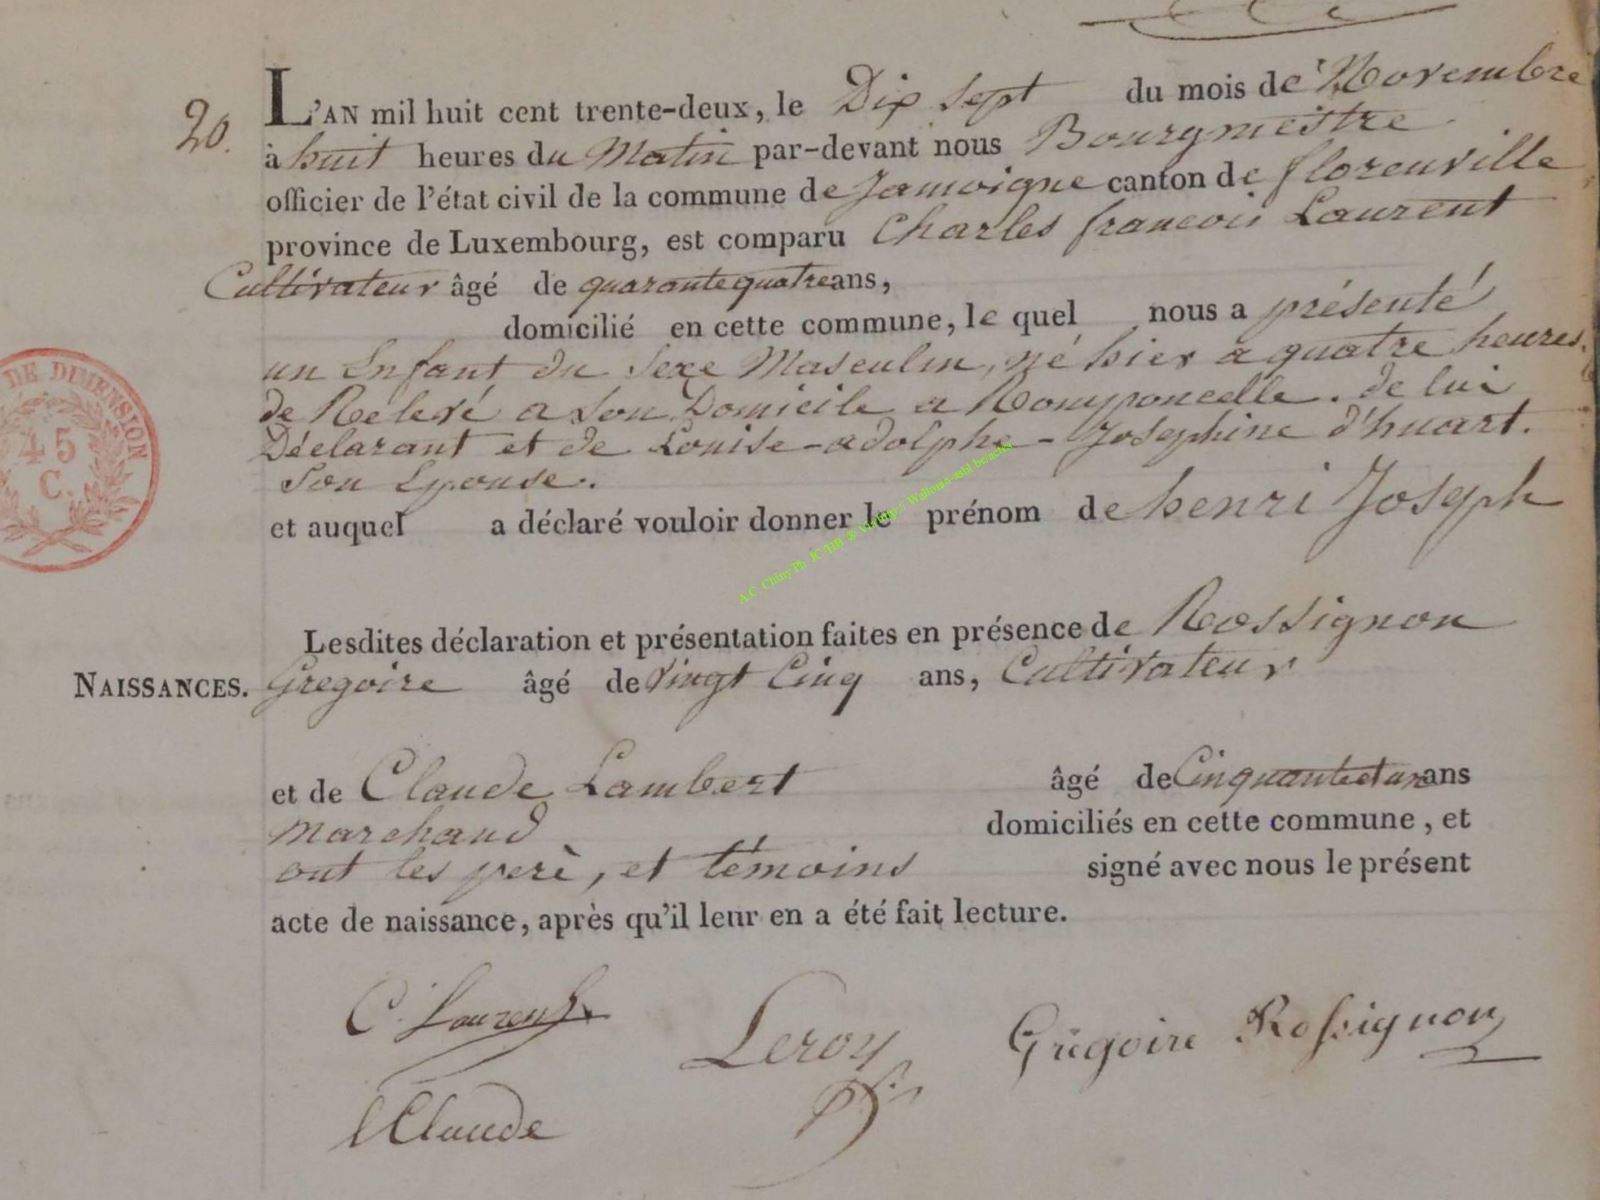 20.
L'AN mil huit cent trente-deux, le Dix sept du mois de Novembre
à huit heures du Matin par-devant nous Bourgmestre
officier de l'état civil de la commune de Jamoigne canton de florenville
province de Luxembourg, est comparu Charles francois Laurent
Cultivateur âgé de quarante quatre ans,
domicilié en cette commune, le quel nous a présenté
un Enfant du Sexe Masculin, né hier a quatre heures
de Rélevé a Son Domicile a Romponcelle. de lui
Déclarant et de Louise-adolphe-Josephine d'huart.
Son Epouse.
et auquel a déclaré vouloir donner le prénom de henri Joseph
Lesdites déclaration et présentation faites en présence de Rossignon
NAISSANCES. Gregoire âgé de Vingt Cinq ans, Cultivateur
et de Claude Lambert âgé de Cinquante et un ans
Marchand domiciliés en cette commune, et
ont les perè, et témoins signé avec nous le présent
acte de naissance, après qu'il leur en a été fait lecture.
C. Laurent Leroy Grégoire Rossignon
l Claude
DE DIMENSION
45
C.
A.C Chiny Ph JC HB @ Visiting / Wallonia-asbl.be/actes